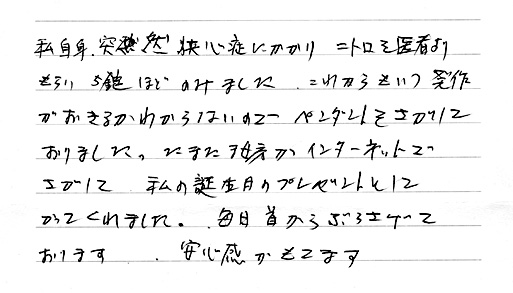 私自身、突然 狭心症にかかり ニトロを医者より
もらい 5錠ほど のみました。これからいつ 発作
がおきるかわからないので ペンダントをさがして
おりました。たまたま 孫がインターネットで
さがして 私の誕生日のプレゼントとして
かってくれました。毎日首からぶらさげて
おります 安心感がもてます